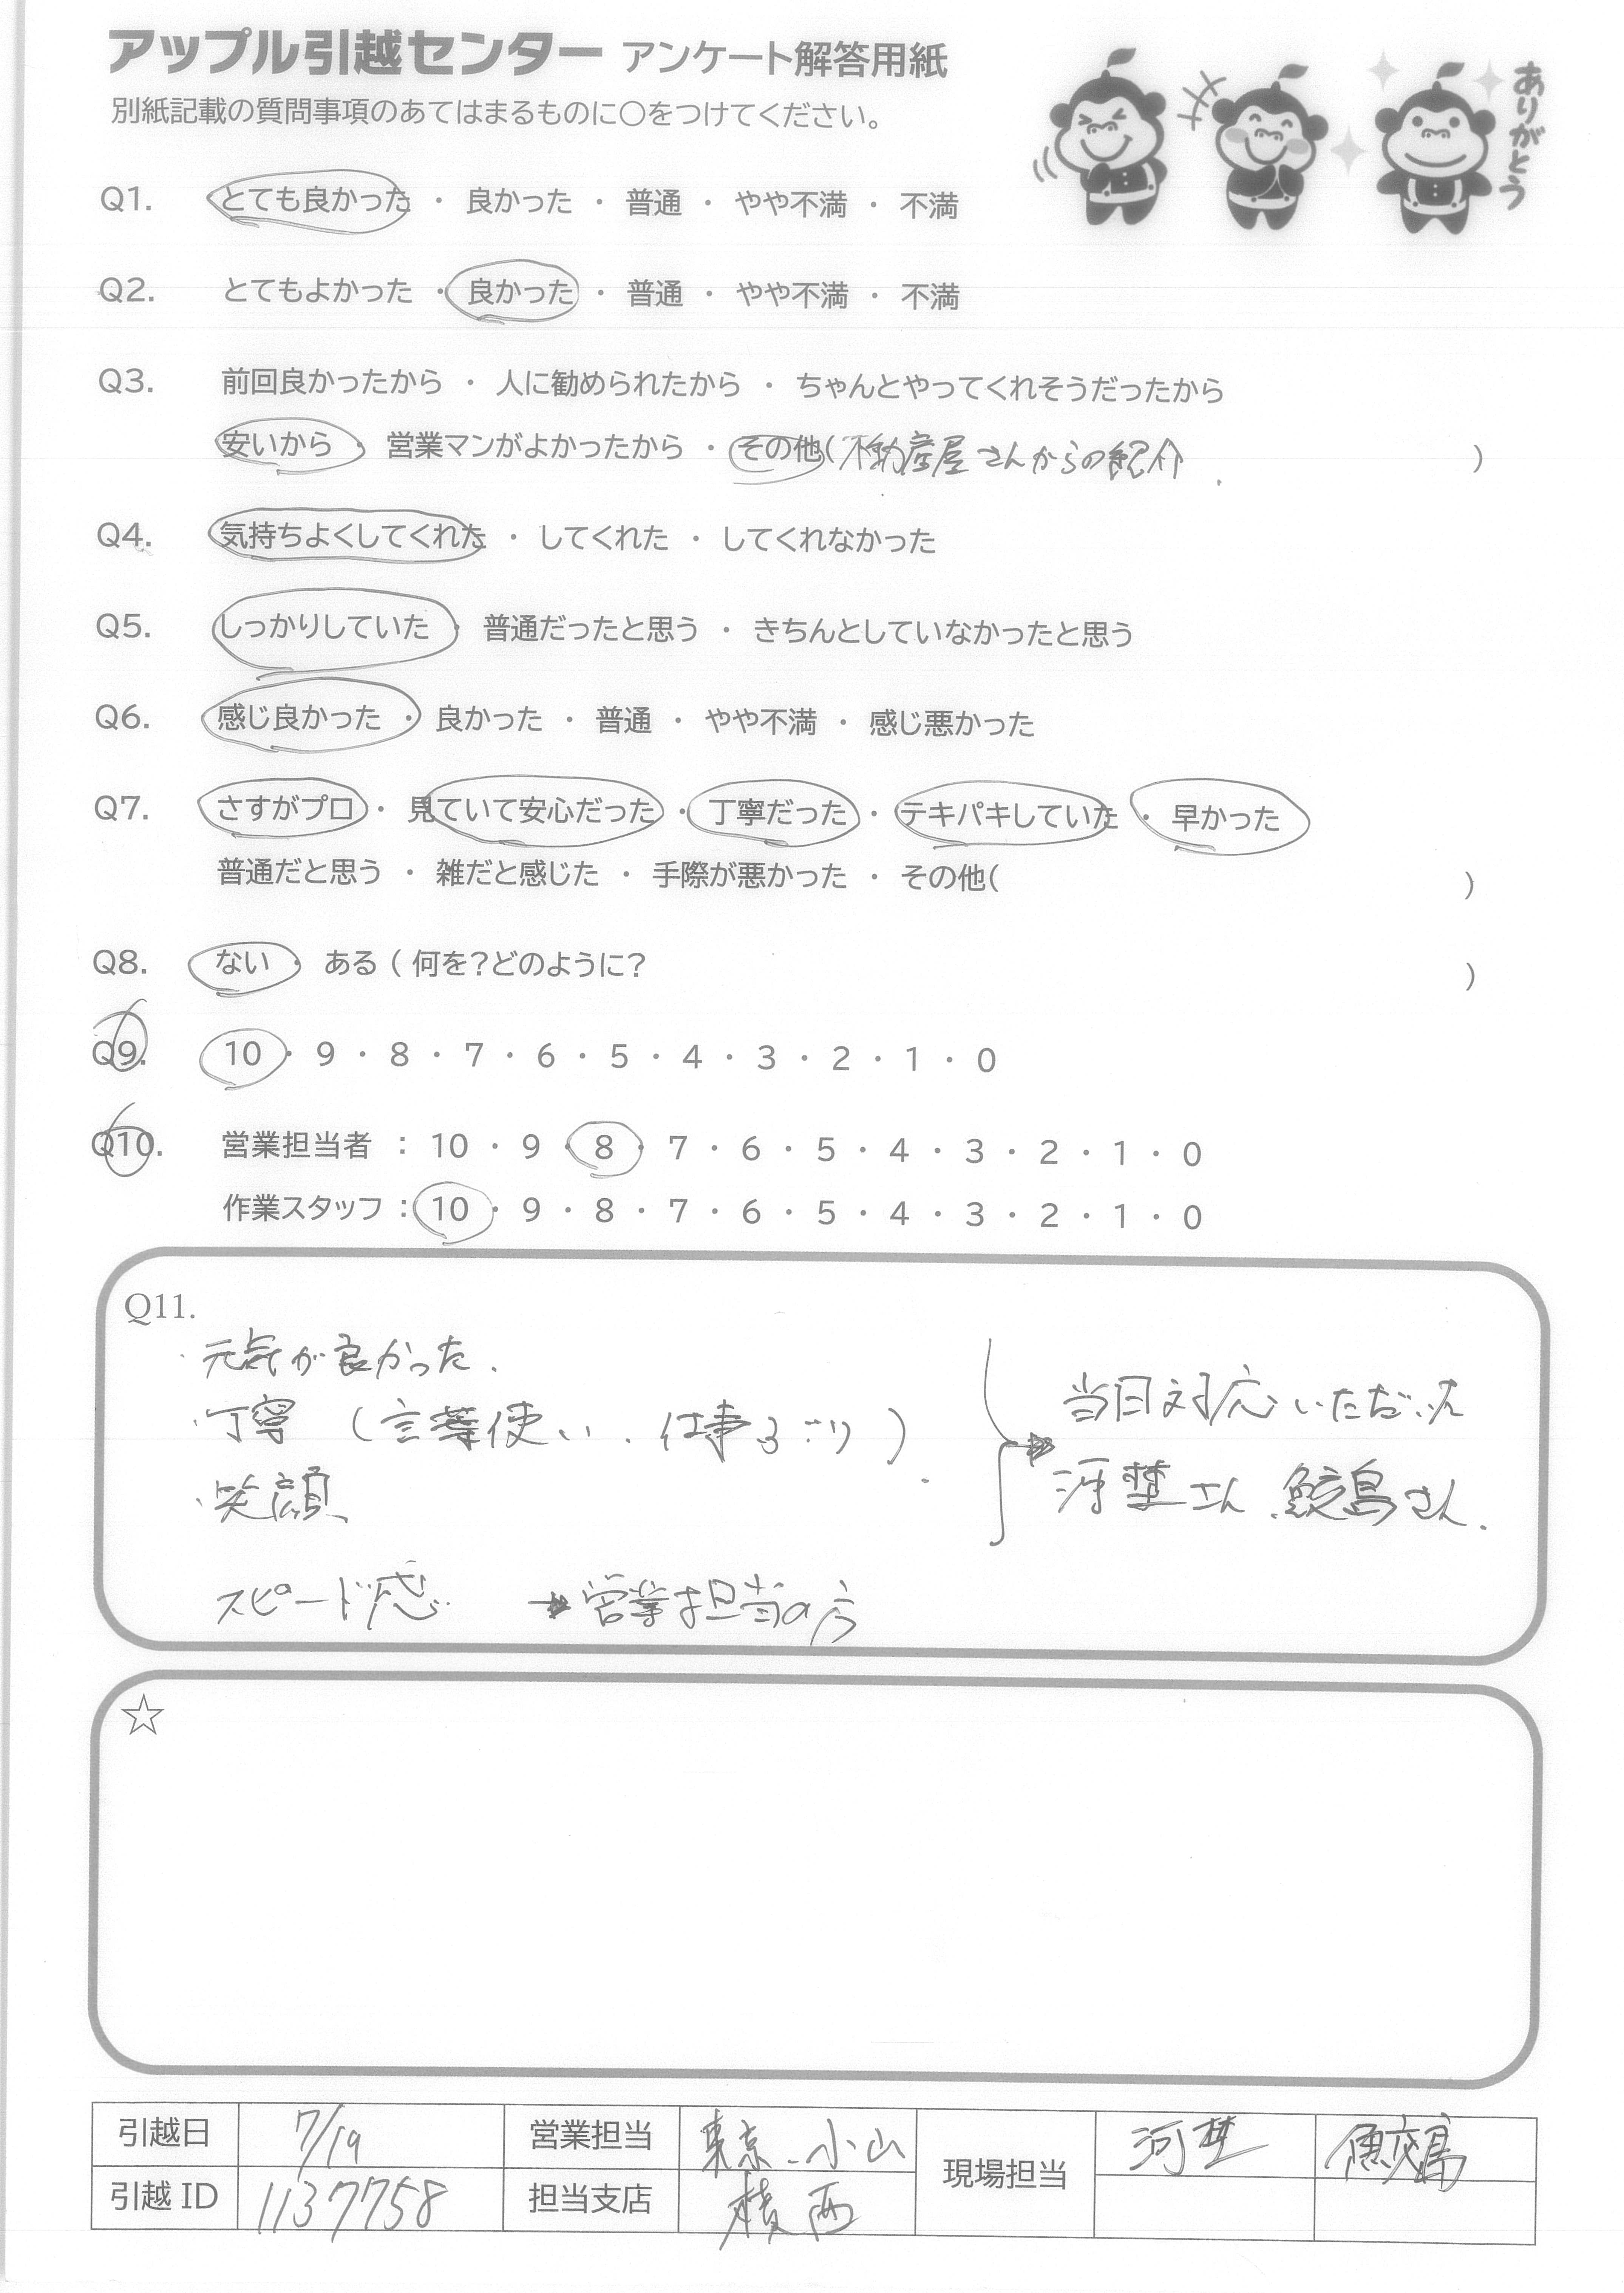 アップル引越センター アンケート解答用紙
ありがとう
別紙記載の質問事項のあてはまるものに○をつけてください。
Q1. とても良かった ・ 良かった ・ 普通 ・ やや不満 ・ 不満
Q2. とてもよかった ・ 良かった ・ 普通 ・ やや不満 ・ 不満
Q3. 前回良かったから ・ 人に勧められたから ・ ちゃんとやってくれそうだったから
安いから ・ 営業マンがよかったから ・ その他(不動産屋さんからの紹介 )
Q4. 気持ちよくしてくれた ・ してくれた ・ してくれなかった
Q5. しっかりしていた ・ 普通だったと思う ・ きちんとしていなかったと思う
Q6. 感じ良かった ・ 良かった ・ 普通 ・ やや不満 ・ 感じ悪かった
Q7. さすがプロ ・ 見ていて安心だった ・ 丁寧だった ・ テキパキしていた ・ 早かった
普通だと思う ・ 雑だと感じた ・ 手際が悪かった ・ その他( )
Q8. ない ・ ある ( 何を?どのように? )
Q9. 10 ・ 9 ・ 8 ・ 7 ・ 6 ・ 5 ・ 4 ・ 3 ・ 2 ・ 1 ・ 0
Q10. 営業担当者 : 10 ・ 9 ・ 8 ・ 7 ・ 6 ・ 5 ・ 4 ・ 3 ・ 2 ・ 1 ・ 0
作業スタッフ : 10 ・ 9 ・ 8 ・ 7 ・ 6 ・ 5 ・ 4 ・ 3 ・ 2 ・ 1 ・ 0
Q11.
・元気が良かった.
・丁寧 (言葉使い.仕事ぶり).
・笑顔、
当日対応いただいた
河埜さん.鮫島さん.
スピード感 → 営業担当の方
☆
引越日 7/19 営業担当 東京.小山 現場担当 河埜 鮫島
引越 ID 1137758 担当支店 西